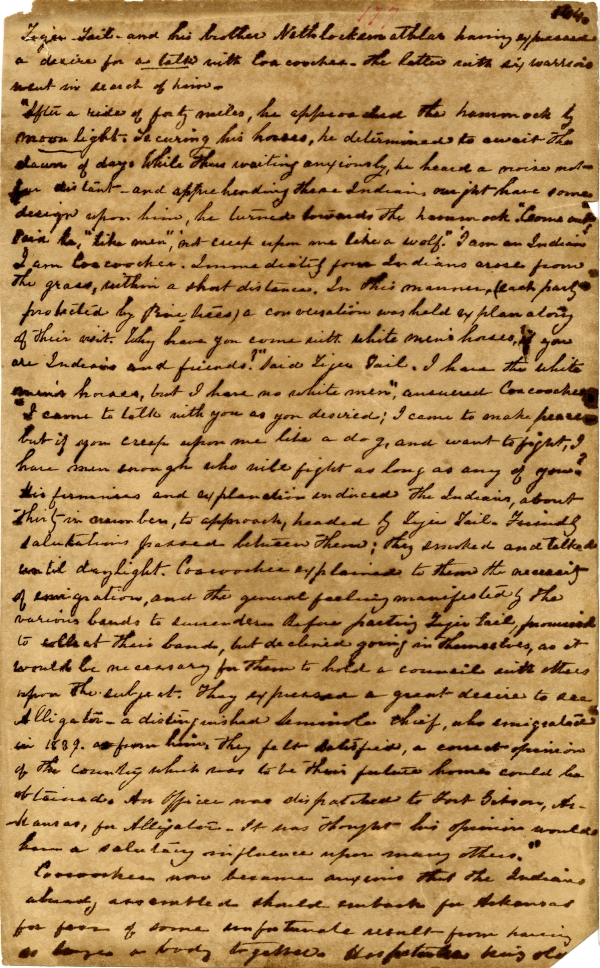 177
Tiger-Tail- and his brother Nethlockemathlar having expressed
a desire for a talk with Coacoochee- the latter with six warriors
went in search of him-
"After a ride of forty miles, he approached the hammock by
moonlight. Securing his horses, he determined to await the
dawn of day. While thus waiting anxiously, he heard a noise not
far distant- and apprehending these Indians might have some
design upon him, he turned towards the hammock "Come out"
said he, "like men", not creep upon me like a wolf." I am an Indian
I am Coacoochee. Immediately four Indians arose from
the grass, within a short distance. In this manner, (each party
protected by Pine trees) a conversation was held explanatory
of their visit. Why have you come with white men's horses, if you
are Indians and friends?" Said Tiger Tail. I have the white
men's horses, but I have no white men", answered Coacoochee
"I came to talk with you as you desired; I came to make peace
but if you creep upon me like a dog, and want to fight, I
have men enough who will fight as long as any of you."
His firmness and explanation induced the Indians, about
thirty in number, to approach, headed by Tiger Tail- Friendly
salutations passed between them; they smoked and talked
until daylight. Coacoochee explained to them the necessity
of emigration, and the general feeling manifested by the
various bands to surrender. Before parting Tiger Tail, promised
to collect their bands, but declined going in themselves, as it
would be necessary for them to hold a council with others
upon the subject. They expressed a great desire to see
Alligator- a distinguished Seminole Chief, who emigrated
in 1839. as from him, they felt satisfied, a correct opinion
of the country which was to be their future home could be
obtained. An Officer was dispatched to Fort Gibson, Ar-
-kansas, for Alligator- It was thought his opinion would
have a salutary influence upon many others."
Coacoochee now became anxious that the Indians
already assembled should embark for Arkansas
for fear of some unfortunate result from having
so large a body together. Hospetarke being old